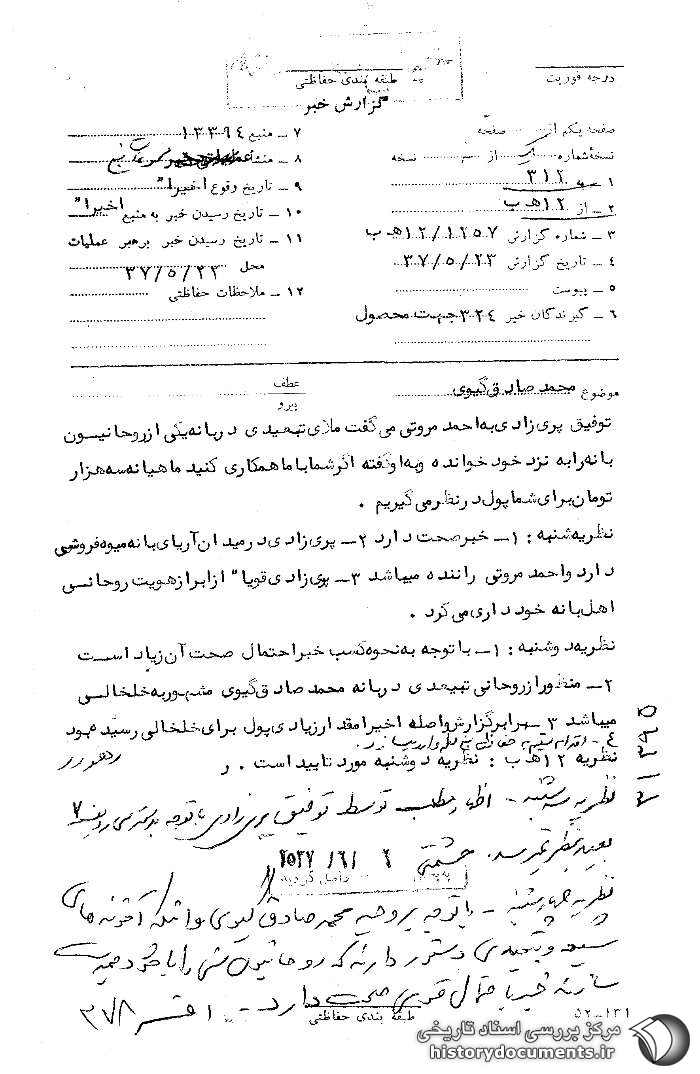 درجه فوریت
طبقه بندی حفاظتی
گزارش خبر
صفحه یکم از صفحه
نسخهٔ شماره از نسخه
۱ ـ به ۳۱۲
۲ ـ از ۱۲ ه‍ ب
۳ ـ شماره گزارش ۱۲/۱۲۵۷ ه‍ ب
۴ ـ تاریخ گزارش ۳۷/۵/۲۳
۵ ـ پیوست
۶ ـ گیرندگان خبر ۳۲۴ جهت محصول
۷ ـ منبع ۱۳۳۹۴
۸ ـ منشأ
۹ ـ تاریخ وقوع اخیرا"
۱۰ ـ تاریخ رسیدن خبر به منبع اخیرا"
۱۱ ـ تاریخ رسیدن خبر برهبر عملیات
محل ۳۷/۵/۲۲
۱۲ ـ ملاحظات حفاظتی
موضوع محمد صادق گیوی
عطف
پیرو
توفیق پری زادی به احمد مروتی می گفت ملای تبعیدی در بانه یکی از روحانیسون
بانه رابه نزد خود خوانده وبه او گفته اگر شما با ما همکاری کنید ماهیانه سه هزار
تومان برای شما پول در نظر می گیریم .
نظریه شنبه : ۱ـ خبر صحت دارد ۲ـ پری زادی در میدان آریای بانه میوه فروشی
دارد و احمد مروتی راننده میباشد ۳ـ پری زادی قویا" از ابراز هویت روحانی
اهل بانه خودداری می کرد .
نظریه دوشنبه : ۱ـ با توجه به نحوه کسب خبر احتمال صحت آن زیاد است
۲ـ منظور از روحانی تبعیدی در بانه محمد صادق گیوی مشهور به خلخالی
میباشد ۳ـ برابر گزارش واصله اخیرا مقدار زیادی پول برای خلخالی رسیده بود
۴ـ اقدام
رهورد
نظریه ۱۲ ه‍ ب : نظریه دوشنبه مورد تایید است .
نظریه سه شنبه ـ اظهار مطلب توسط توفیق پری زادی با توجه به
بعید بنظر نمیرسد. حشمتی
۲۵۳۷/۶/۶
حاصل گردید
نظریه چهارشنبه ـ با توجه بروحیه محمد صادق گیوی و اینکه آخوندهای
شیعه و تبعیدی دستور دارند که روحانیون سنی را با خود همدست
سازند خبر با احتمال قوی صحت دارد ـ افسر ۳۷۸
طبقه بندی حفاظتی
۵۲ـ۱۳۱
مرکز بررسی اسناد تاریخی
historydocuments.ir